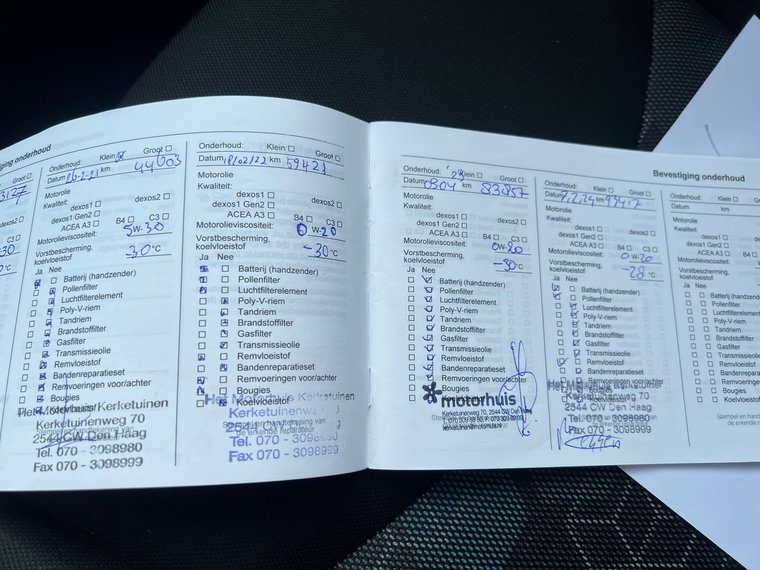 ging onderhoud
3127
dexos2
C3
30
°C
Onderhoud: Klein Groot
Datum 16-2-21 km 44003
Motorolie
Kwaliteit:
dexos1 dexos2
dexos1 Gen2
ACEA A3 B4 C3
Motorolieviscositeit: 5W-30
Vorstbescherming, koelvloeistof -30°C
Ja Nee
Batterij (handzender)
Pollenfilter
Luchtfilterelement
Poly-V-riem
Tandriem
Brandstoffilter
Gasfilter
Transmissieolie
Remvloeistof
Bandenreparatieset
Remvoeringen voor/achter
Bougies
Koelvloeistof
Het Motorhuis Kerketuinen
Kerketuinenweg 70
2544 CW Den Haag
Tel. 070 - 3098980
Fax 070 - 3098999
Onderhoud: Klein Groot
Datum 18/02/22 km 59423
Motorolie
Kwaliteit:
dexos1 dexos2
dexos1 Gen2
ACEA A3 B4 C3
Motorolieviscositeit: 0W-20
Vorstbescherming,
koelvloeistof -30°C
Ja Nee
Batterij (handzender)
Pollenfilter
Luchtfilterelement
Poly-V-riem
Tandriem
Brandstoffilter
Gasfilter
Transmissieolie
Remvloeistof
Bandenreparatieset
Remvoeringen voor/achter
Bougies
Koelvloeistof
Het Motorhuis Kerketuinen
Kerketuinenweg
2544 CW
Stempel en handtekening van
de erkende reparateur
Tel. 070 - 3098980
Fax 070 - 3098999
Onderhoud: '23 Klein Groot
Datum 0304 km 83857
Motorolie
Kwaliteit:
dexos1 dexos2
dexos1 Gen2
ACEA A3 B4 C3
Motorolieviscositeit: 0W-20
Vorstbescherming,
koelvloeistof -30°C
Ja Nee
Batterij (handzender)
Pollenfilter
Luchtfilterelement
Poly-V-riem
Tandriem
Brandstoffilter
Gasfilter
Transmissieolie
Remvloeistof
Bandenreparatieset
Remvoeringen voor/achter
motorhuis
Kerketuinenweg 70, 2544 CW Den Haag
Bevestiging onderhoud
Onderhoud: Klein Groot
Datum km
Motorolie
Kwaliteit:
dexos1 dexos2
dexos1 Gen2
ACEA A3 B4 C3
Motorolieviscositeit: 0W-20
Vorstbescherming,
koelvloeistof -28°C
Ja Nee
Batterij (handzender)
Pollenfilter
Luchtfilterelement
Poly-V-riem
Tandriem
Brandstoffilter
Gasfilter
Transmissieolie
Remvloeistof
Bandenreparatieset
Remvoeringen voor/achter
Het Motorhuis Kerketuinen
Kerketuinenweg 70
2544 CW Den Haag
Tel. 070 - 3098980
Fax 070 - 3098999
Onderhoud: Klein
Datum km
Motorolie
Kwaliteit:
dexos1
dexos1 Gen2
ACEA A3 B4
Motorolieviscositeit:
Vorstbescherming,
koelvloeistof
Ja Nee
Batterij (handzender)
Pollenfilter
Luchtfilterelement
Poly-V-riem
Tandriem
Brandstoffilter
Gasfilter
Transmissieolie
Remvloeistof
Bandenreparatieset
Remvoeringen
Bougies
Koelvloeistof
Stempel en hand
de erkende re